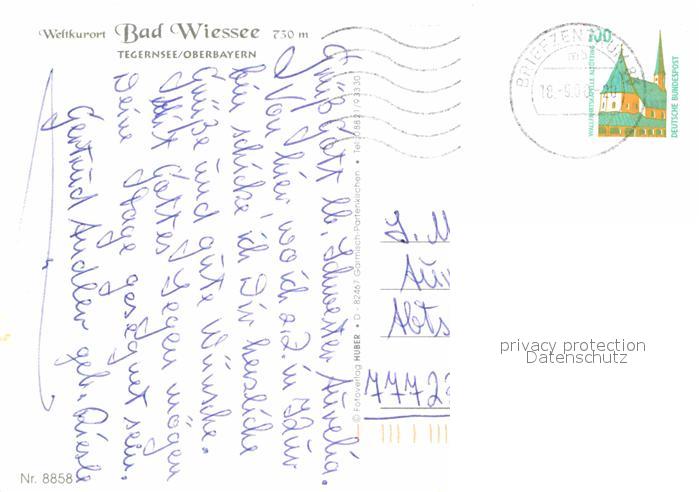 Weltkurort Bad Wiessee 730 m
TEGERNSEE/OBERBAYERN
Grüß Gott lb. Schwester Aurelia.
Von hier, wo ich z.Z. in Kur
bin schicke ich Dir herzliche
Grüße und gute Wünsche.
Mit Gottes Segen mögen
Deine Tage gesegnet sein.
Gertrud geb.
Nr. 8858
© Fotoverlag HUBER • D - 82467 Garmisch-Partenkirchen • Tel. 08821/93330
BRIEFZENTRUM
18.-9.00
100
WALLFAHRTSKAPELLE ALTÖTTING
DEUTSCHE BUNDESPOST
S. M
Abts
7772
privacy protection
Datenschutz